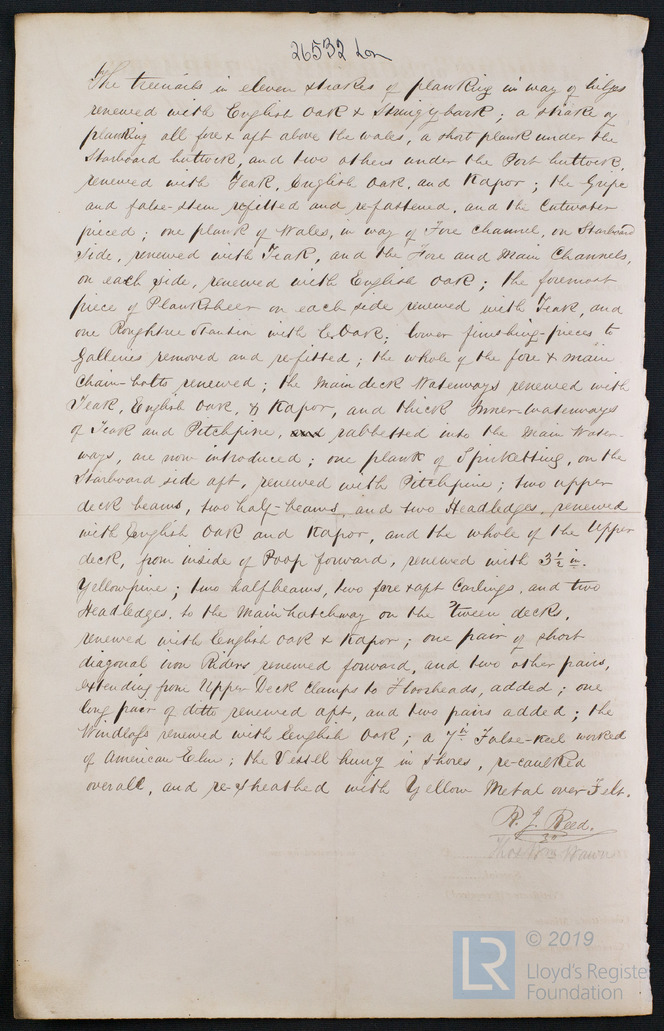 26532 Lon
The treenails in eleven strakes of planking in way of bilges
renewed with English Oak & Stringybark; a strake of
planking all fore & aft above the wales, a short plank under the
Starboard buttock, and two others under the Port buttock,
renewed with Teak, English Oak, and Kapor; the Gripe
and false-stem refitted and refastened, and the Cutwater
pieced; one plank of Wales, in way of Fore Channel, on Starboard
side, renewed with Teak, and the Fore and Main Channels,
on each side, renewed with English Oak; the foremost
piece of Planksheer on each side renewed with Teak, and
one Roughtree Stantion with E. Oak; lower finishing-pieces to
Galleries removed and re-fitted; the whole of the fore & main
Chain-bolts renewed; the Main deck Waterways renewed with
Teak, English Oak, & Kapor, and thick Inner-waterways
of Teak and Pitchpine, and rabbetted into the Main Water-
ways, are now introduced; one plank of Spirketting, on the
Starboard side aft, renewed with Pitchpine; two upper
deck beams, two half-beams, and two Headledges, renewed
with English Oak and Kapor, and the whole of the Upper
deck, from inside of Poop forward, renewed with 3½ in.
Yellowpine; two halfbeams, two fore & apt Carlings, and two
Headledges, to the Main hatchway on the 'tween decks,
renewed with English Oak & Kapor; one pair of short
diagonal iron Riders renewed forward, and two other pairs,
extending from Upper Deck Clamps to Floorheads, added; one
long pair of ditto renewed aft, and two pairs added; the
Windlass renewed with English Oak; a 7in False-keel worked
of American Elm; the Vessel hung in shores, re-caulked
overall, and re-sheathed with Yellow Metal over Felt.
R. J. Reed.
30
Thos Wm Wawn
LR
© 2019
Lloyd's Registe
Foundation